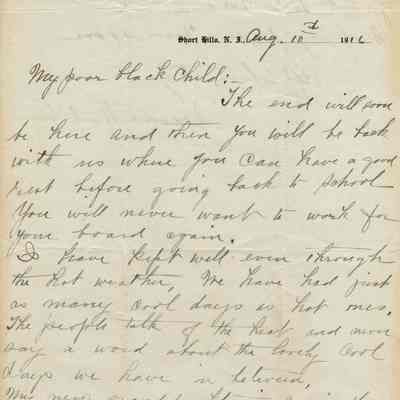 Short Hills, N. J., Aug. 10th 1896
My poor black Child:-
The end will soon
be here and then you will be back
with us where you can have a good
rest before going back to school
You will never want to work for
your board again.
I have kept well even through
the hot weather, We have had just
as many cool days as hot ones.
The people talk of the heat and never
say a word about the lovely cool
days we have in between,
Mrs